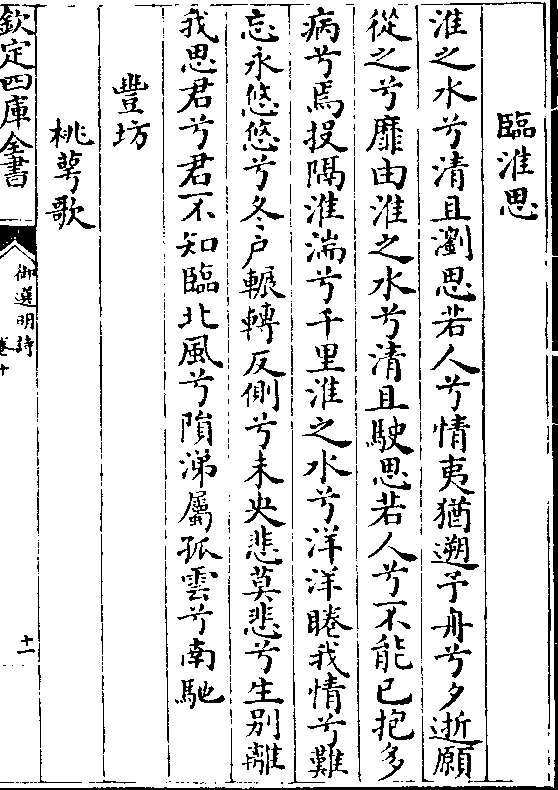 臨淮思
淮之水兮清且瀏思若人兮情夷猶遡予舟兮夕逝願
從之兮靡由淮之水兮清且駛思若人兮不能已抱多
病兮焉投隔淮湍兮千里淮之水兮洋洋睠我情兮難
忘永悠悠兮冬户輾轉反側兮未央悲莫悲兮生别離
我思君兮君不知臨北風兮隕涕屬孤雲兮南馳
豐坊
桃萼歌
欽定四庫全書
御選明詩
卷十
十一